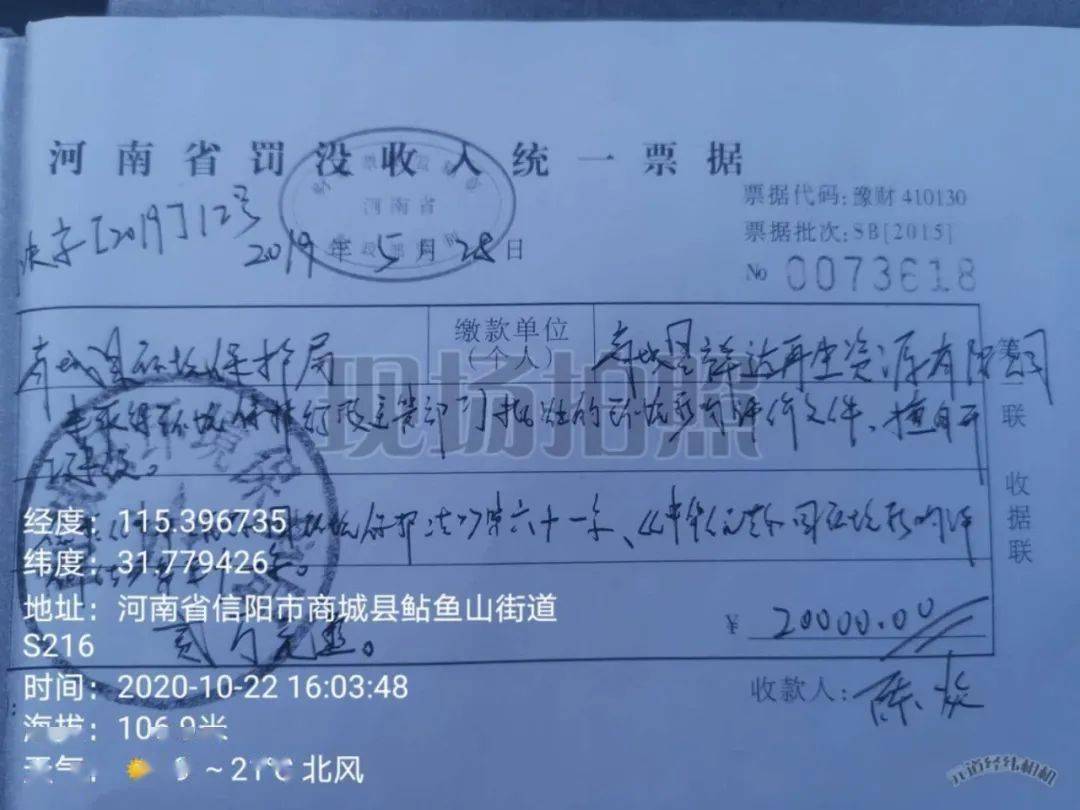 河南省罚没收入统一票据
河南省
决字[2019]12号
2019年5月28日
票据代码:豫财 410130
票据批次:SB[2015]
No 0073618
商城县环境保护局
缴款单位(个人)
商城县祥达再生资源有限公司
未取得环境保护行政主管部门批准的环境影响评价文件、擅自开
工建设。
环境保护法》第六十一条、《中华人民共和国环境影响评
第一联
收据联
贰万元整。
¥ 20000.00
收款人:陈
现场拍照
经度:115.396735
纬度:31.779426
地址:河南省信阳市商城县鲇鱼山街道
S216
时间:2020-10-22 16:03:48
海拔:106.9米
天气: ~21℃ 北风
元道经纬相机